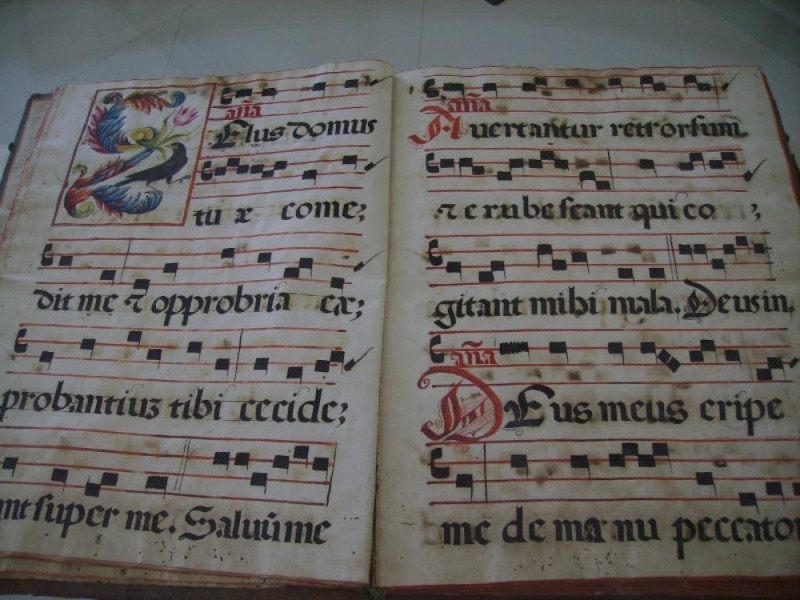 aña
Zelus domus
tuæ come;
dit me ⁊ opprobria ex;
probantiuz tibi cecide;
nt super me. Saluũ me
aña
Auertantur retrorsum
⁊ erubescant qui co ;
gitant mihi mala. Deus in
aña
DEus meus eripe
me de manu peccato